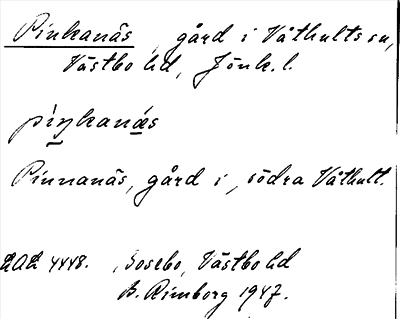 Pinkanäs, gård i Våthults sn,
Västbo hd, Jönk. l.
pìŋkanä́s
Pinnanäs, gård i, södra Våthult.
ULMA 4448. , Bosebo, Västbo hd
B. Rimborg 1947.